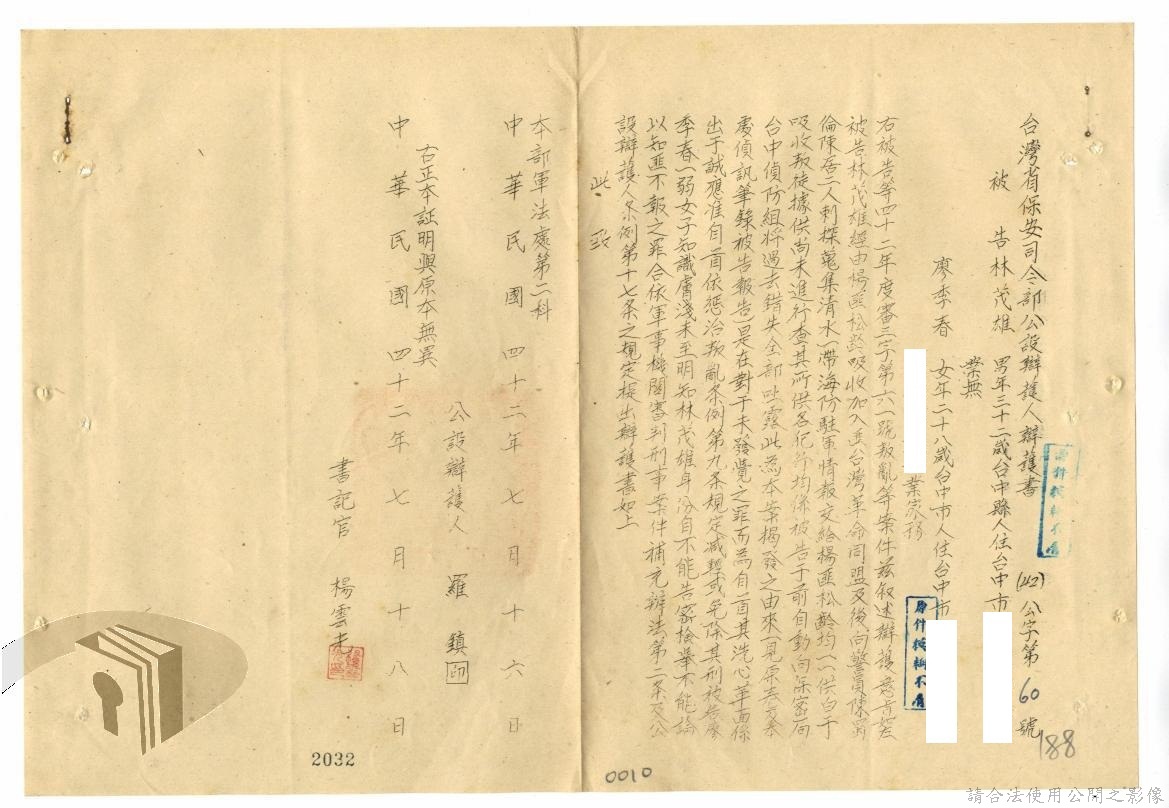 台灣省保安司令部公設辯護人辯護書 (42)公字第60號
被告林茂雄 男年三十二歲台中縣人住台中市
業無
廖季春 女年二十八歲台中市人住台中市
業家務
右被告等四十二年度審三字第六一號叛亂等案件茲叙述辯護意旨於
被告林茂雄經由楊匪松齡吸收加入匪台灣革命同盟及後向警員陳
倫陳岳二人刺探蒐集清水一帶海防駐軍情報交給楊匪松齡均一一供白于
吸收叛徒據供尚未進行查其所供各犯行均係被告于前自動向保密局
台中偵防組將過去錯失全部吐露此為本案揭發之由來一見
處偵訊筆錄被告報告是在對于未發覺之罪而為自首其洗心革面係
出于誠應准自首依懲治叛亂条例第九条規定減輕或免除其刑被告廖
季春一弱女子知識膚淺未至明知林茂雄身份自不能告密檢舉不能論
以知匪不報之罪合依軍事機關審判刑事案件補充辦法第二条及公
設辯護人条例第十七条之規定提出辯護書如上
此致
本部軍法處第二科
中華民國四十二年七月十六日
公設辯護人 羅鎮 印
右正本証明與原本無異
中華民國四十二年七月十八日
書記官 楊雲
188
2032
0010
請合法使用公開之影像